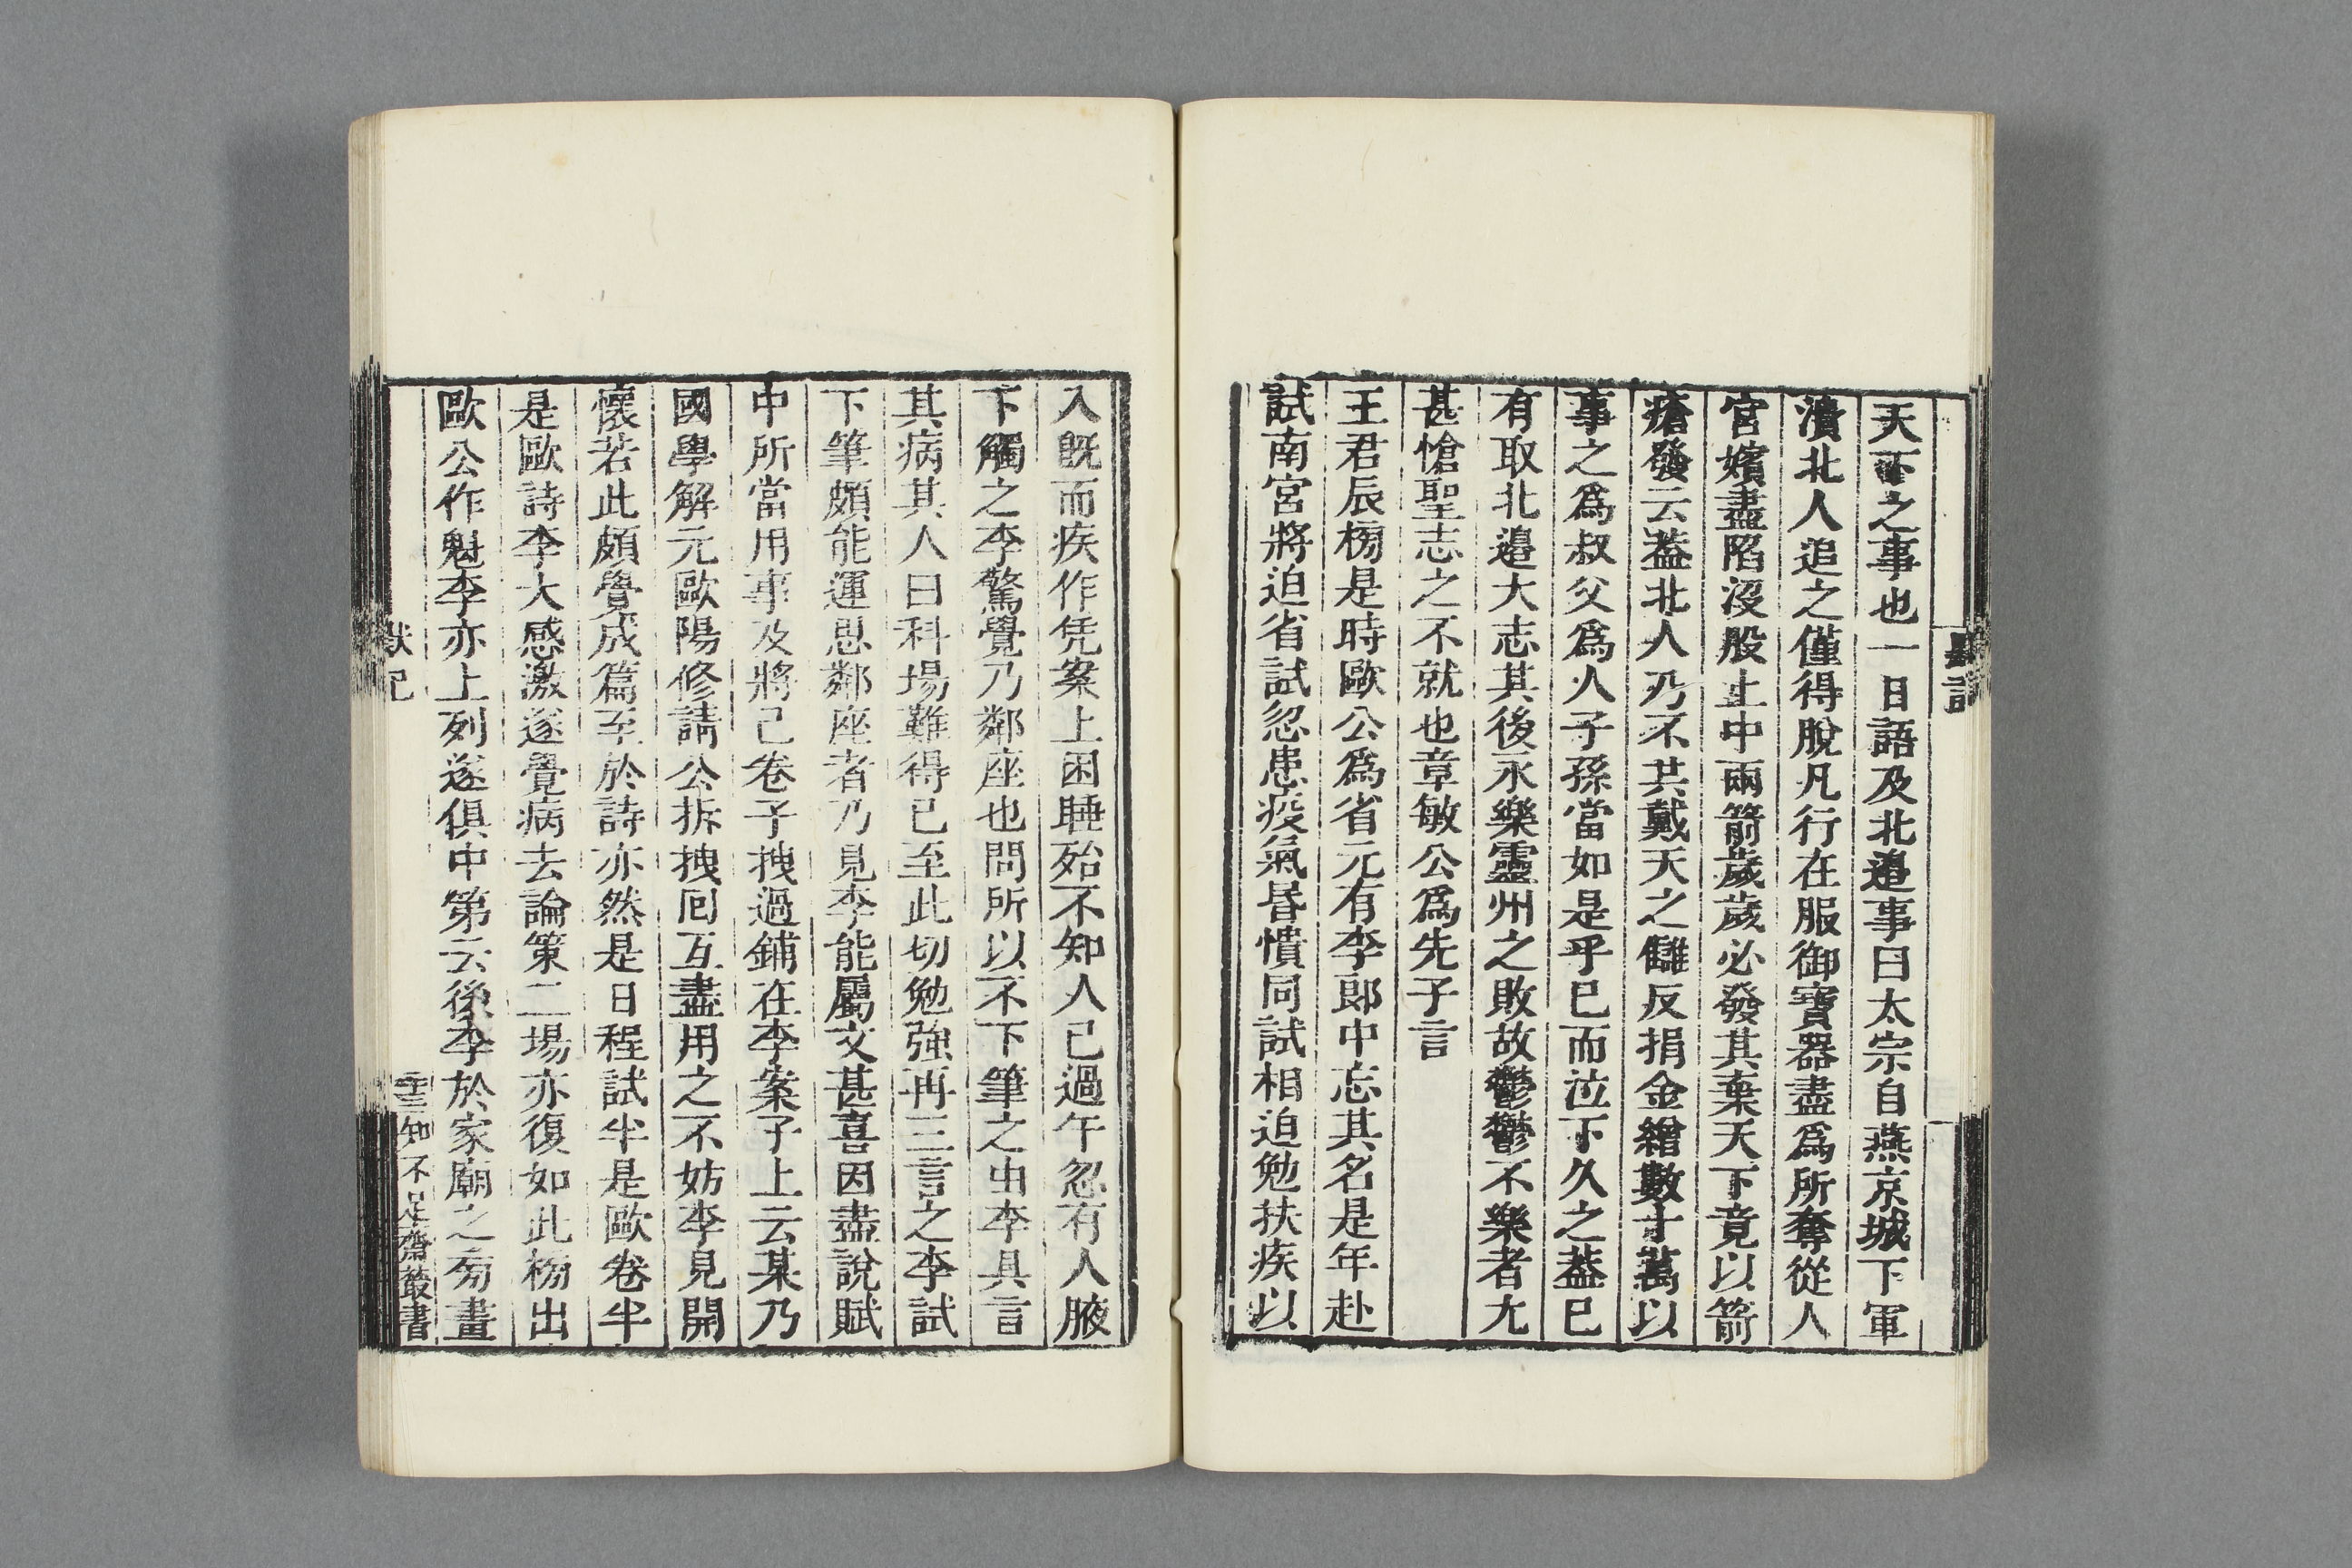 默記
天下之事也一日語及北邉事曰太宗自燕京城下軍
潰北人追之僅得脫凡行在服御寶器盡爲所奪從人
宮嬪盡陷沒股上中兩箭歲歲必發其棄天下竟以箭
瘡發云葢北人乃不共戴天之讎反捐金繒數十萬以
事之爲叔父爲人子孫當如是乎已而泣下久之葢已
有取北邉大志其後永樂靈州之敗故鬱鬱不樂者尢
甚愴聖志之不就也章敏公爲先子言
王君辰榜是時歐公爲省元有李郎中忘其名是年赴
試南宮將迫省試忽患疫氣昏憒同試相迫勉扶疾以
入旣而疾作凭案上困睡殆不知人已過午忽有人腋
下觸之李驚覺乃鄰座也問所以不下筆之由李具言
其病其人曰科場難得已至此切勉強再三言之李試
下筆頗能運思鄰座者乃見李能屬文甚喜因盡說賦
中所當用事及將己卷子拽過鋪在李案子上云某乃
國學解元歐陽修請公拆拽囘互盡用之不妨李見開
懷若此頗覺成篇至於詩亦然是日程試半是歐卷半
是歐詩李大感激遂覺病去論策二場亦復如此榜出
歐公作魁李亦上列遂俱中第云後李於家廟之旁畫
默記
知不足齋叢書